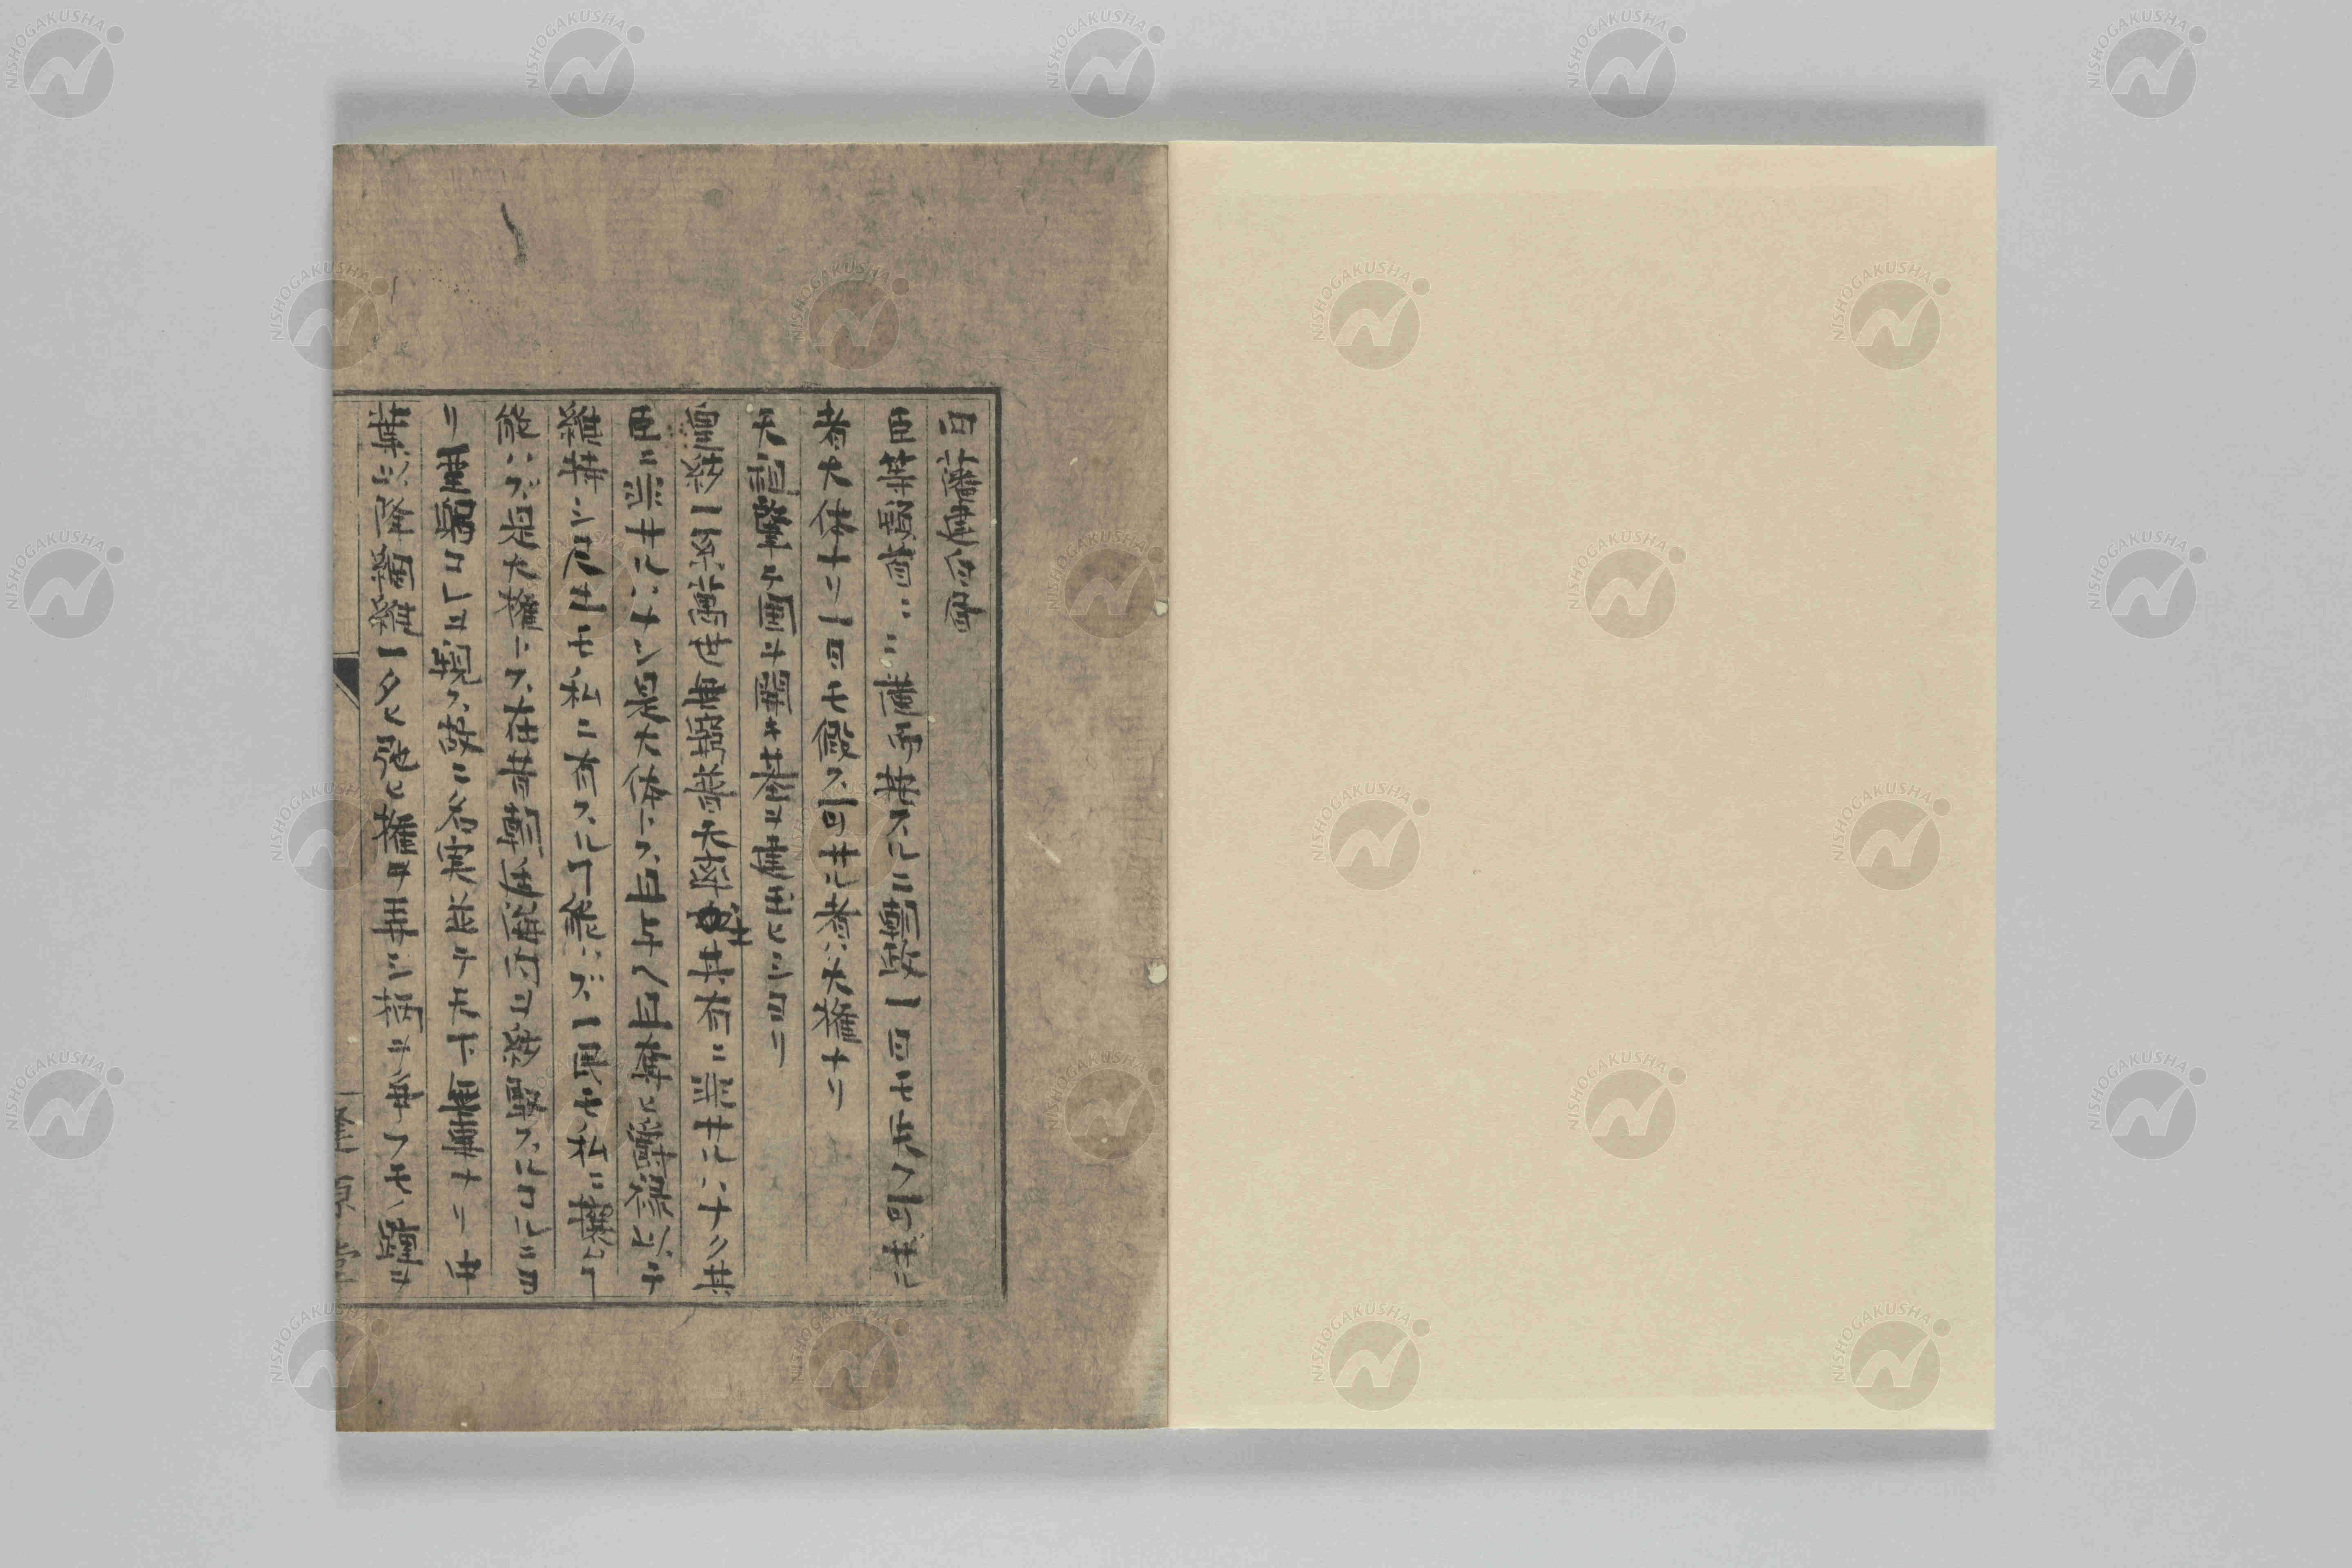 四藩建白書
臣等頓首々々謹而案スルニ朝政一日モ失フ可サル
者大体ナリ一日モ仮ス可サル者ハ大権ナリ
天祖肇テ国ヲ開キ基ヲ建玉ヒシヨリ
皇統一系萬世無窮普天率土其有ニ非サルハナク其
臣ニ非サルハナシ是大体トス且与ヘ且奪ヒ爵禄以テ
維持シ尺土モ私ニ有スルヿ能ハズ一民モ私ニ攘ムヿ
能ハズ是大権トス在昔朝廷海内ヲ統馭スルコレニヨ
リ聖躬コレヲ親ス故ニ名実並テ天下無事ナリ中
葉以降綱維一タヒ弛ヒ権ヲ弄シ柄ヲ争フモノ踵ヲ
NISHOGAKUSHA